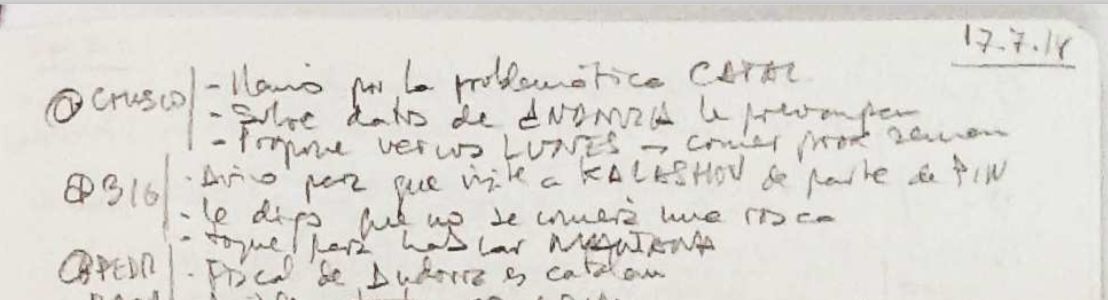 17.7.14
CHUSCO - Llamó por la problemática CATAL
- Sobre datos de ANDORRA le preocupan
- Propone vernos LUNES → comer prox semana
BIG - Aviso para que visite a KALASHOV de parte de PIN
- le digo que no se comerá una rosca
- toque para hablar MAÑANA
- Fiscal de Andorra es catalán